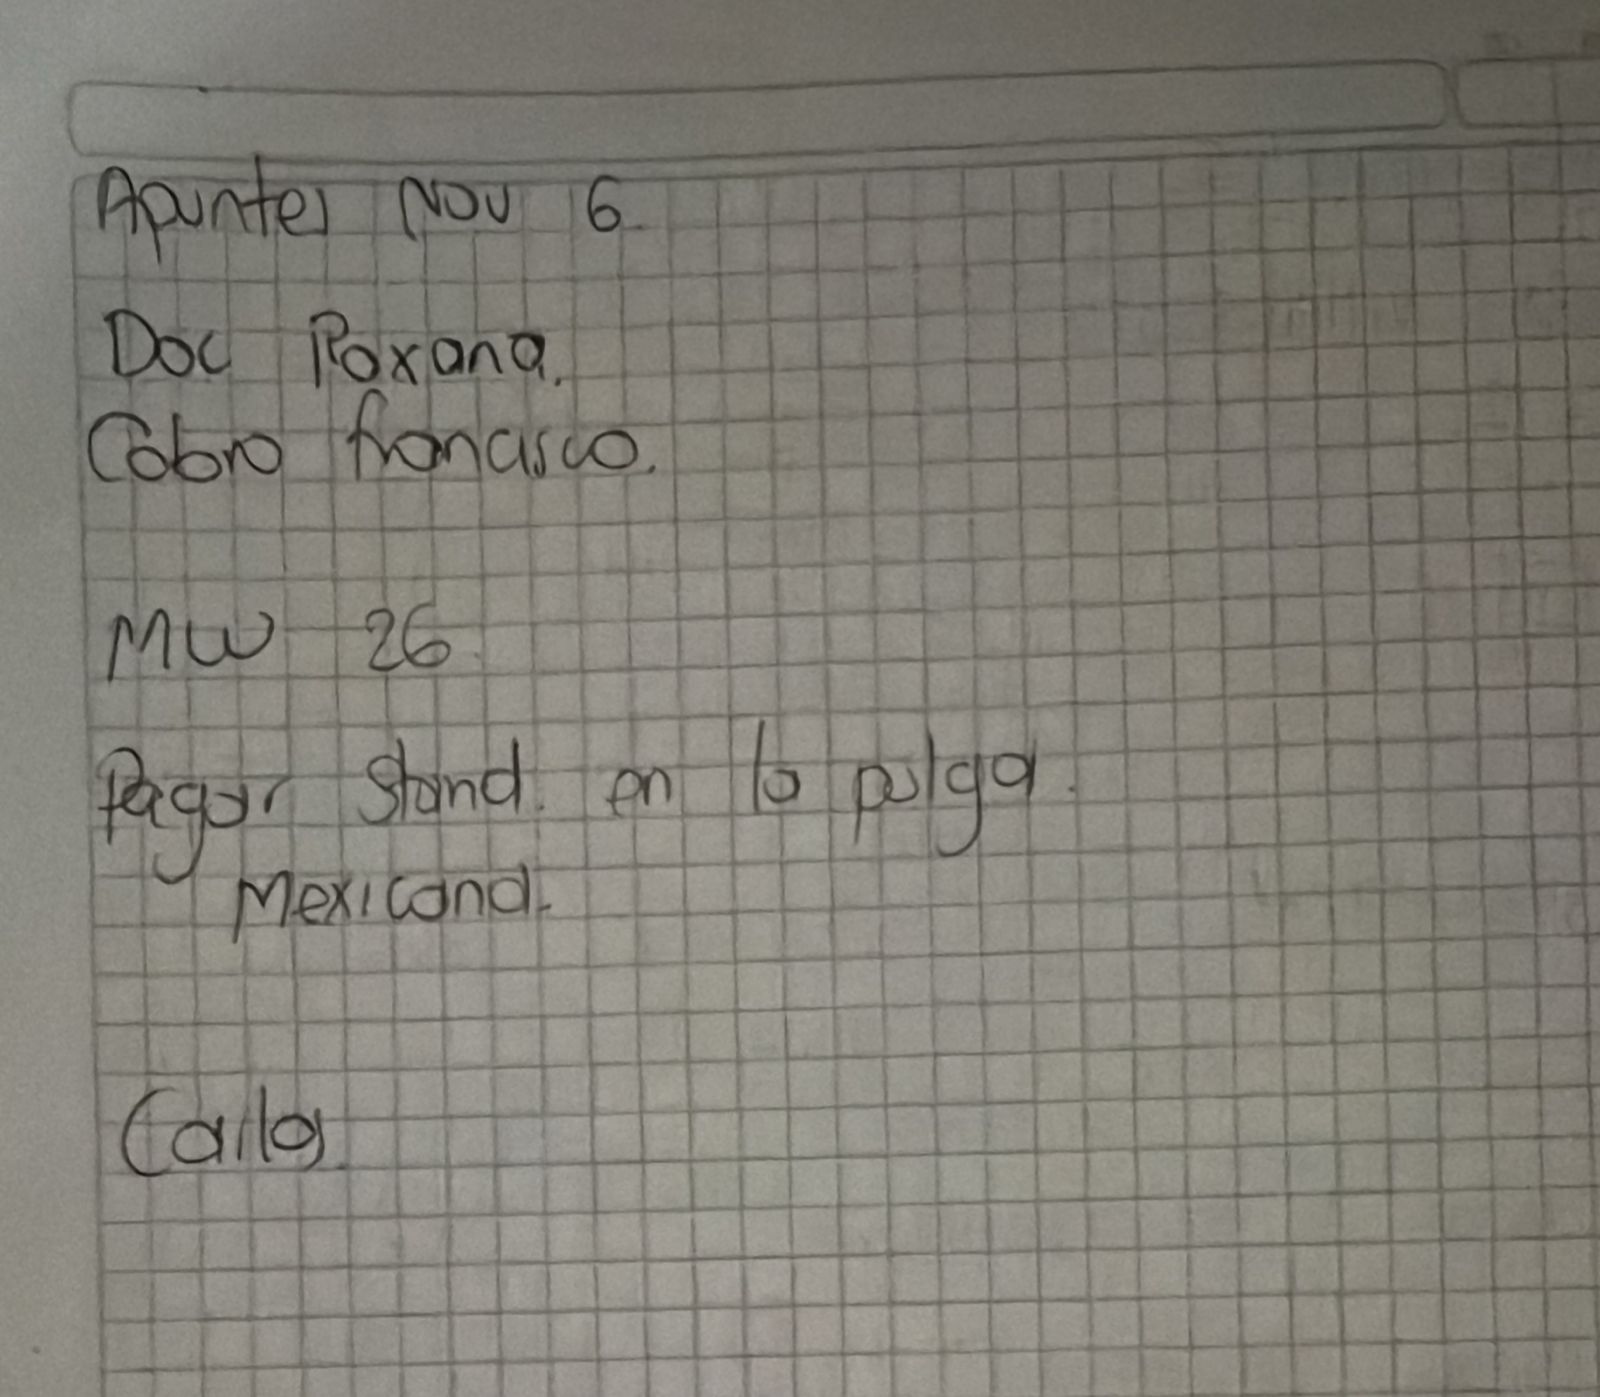 Apuntes Nov 6.
Doc Roxana.
Cobro francisco.
MW 26.
Pagar Stand. en la pulga.
Mexicana.
Carlos